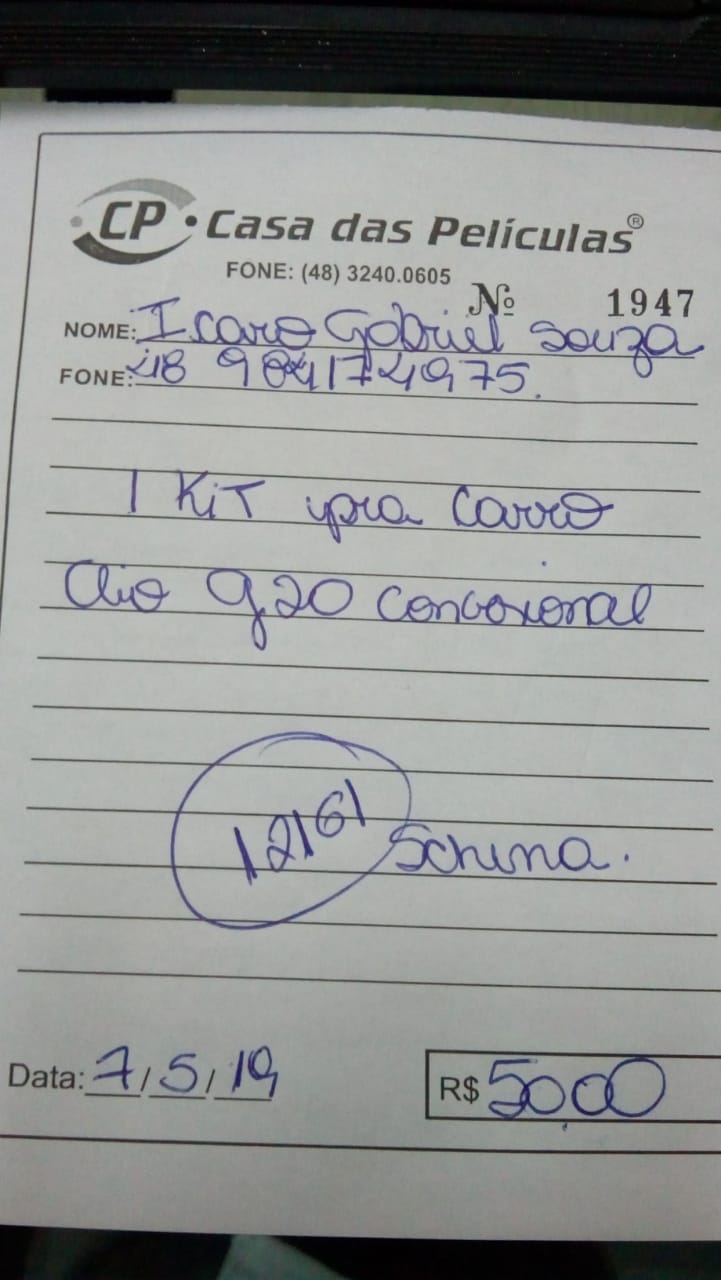 CP • Casa das Películas®
FONE: (48) 3240.0605
Nº 1947
NOME: Icaro Gabriel Souza
FONE: 48 984174975.
1 KiT pra Carro
Clio g20 concoxional
12161 Schina.
Data: 7/5/19
R$ 5000